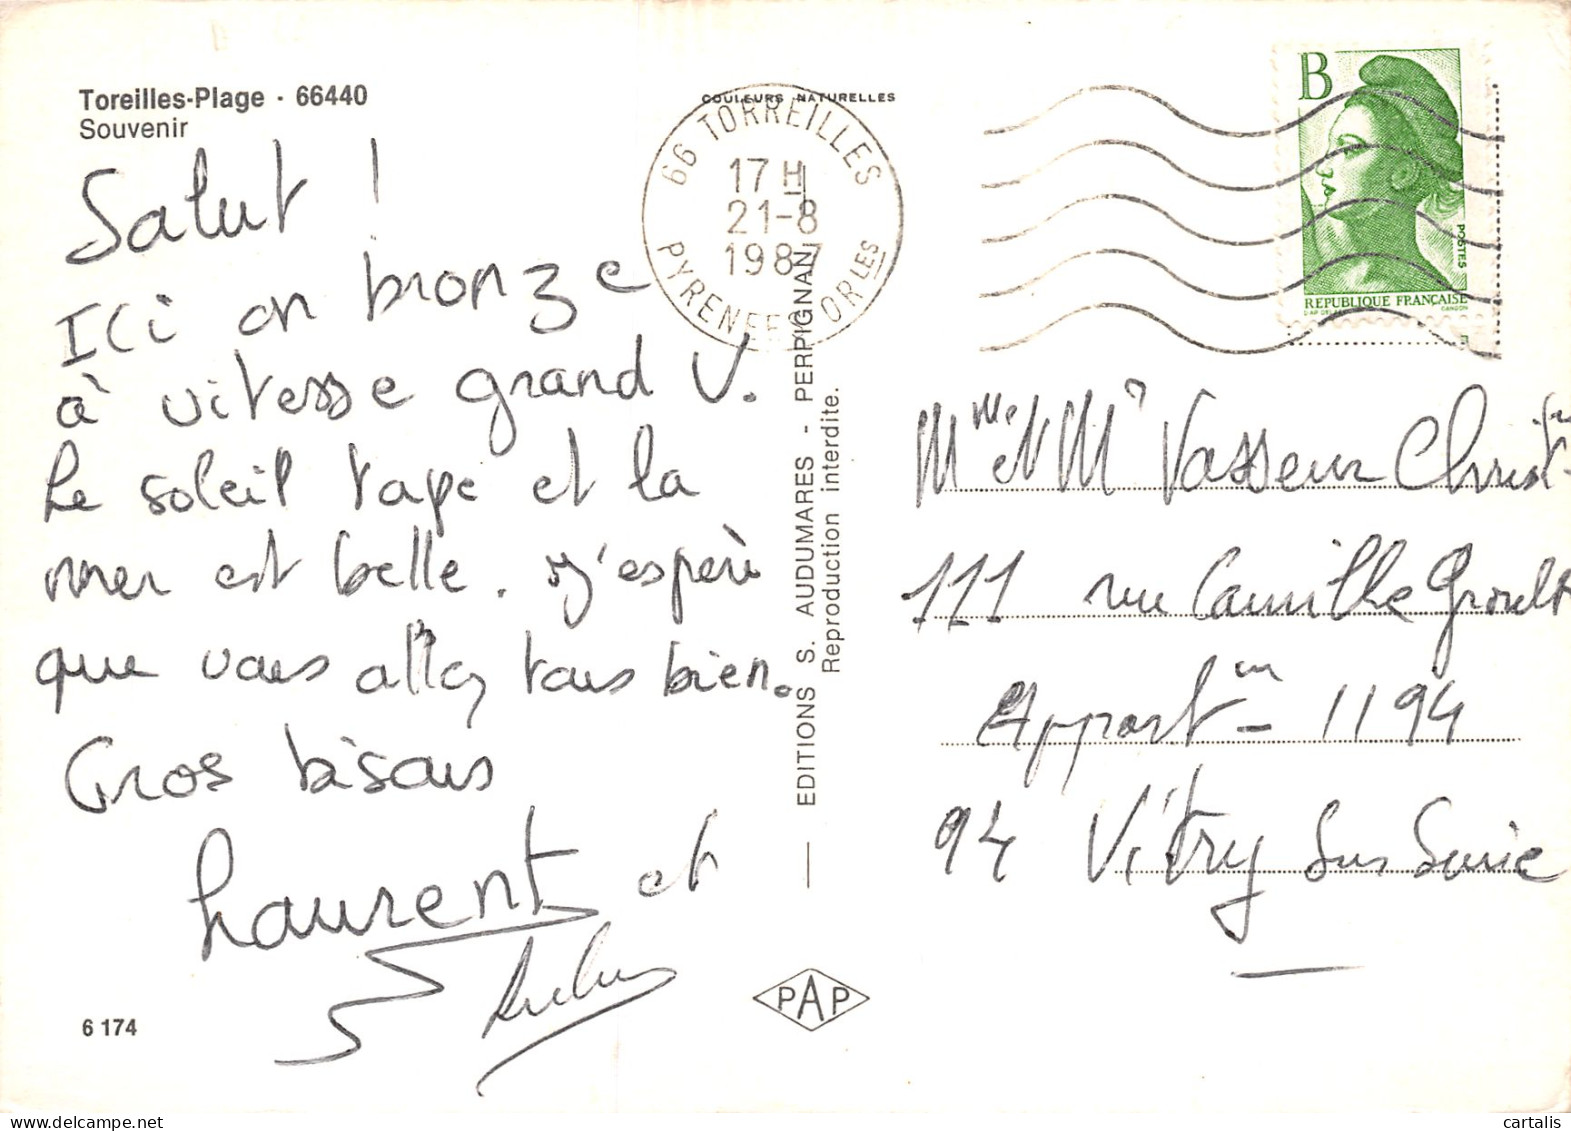 Toreilles-Plage · 66440
Souvenir
Salut !
Ici on bronze
à vitesse grand V.
Le soleil tape et la
mer est belle. J'espère
que vous allez tous bien.
Gros bisous
Laurent et
6 174
COULEURS NATURELLES
66 TORREILLES
17 H
21-8
1987
PYRENEES ORLES
EDITIONS S. AUDUMARES - PERPIGNAN
Reproduction interdite.
PAP
B
POSTES
REPUBLIQUE FRANÇAISE
GANDON
Mme et Mr Vasseur Christian
111 rue Camille Groult
Appart- 1194
94 Vitry sur Seine
cartalis